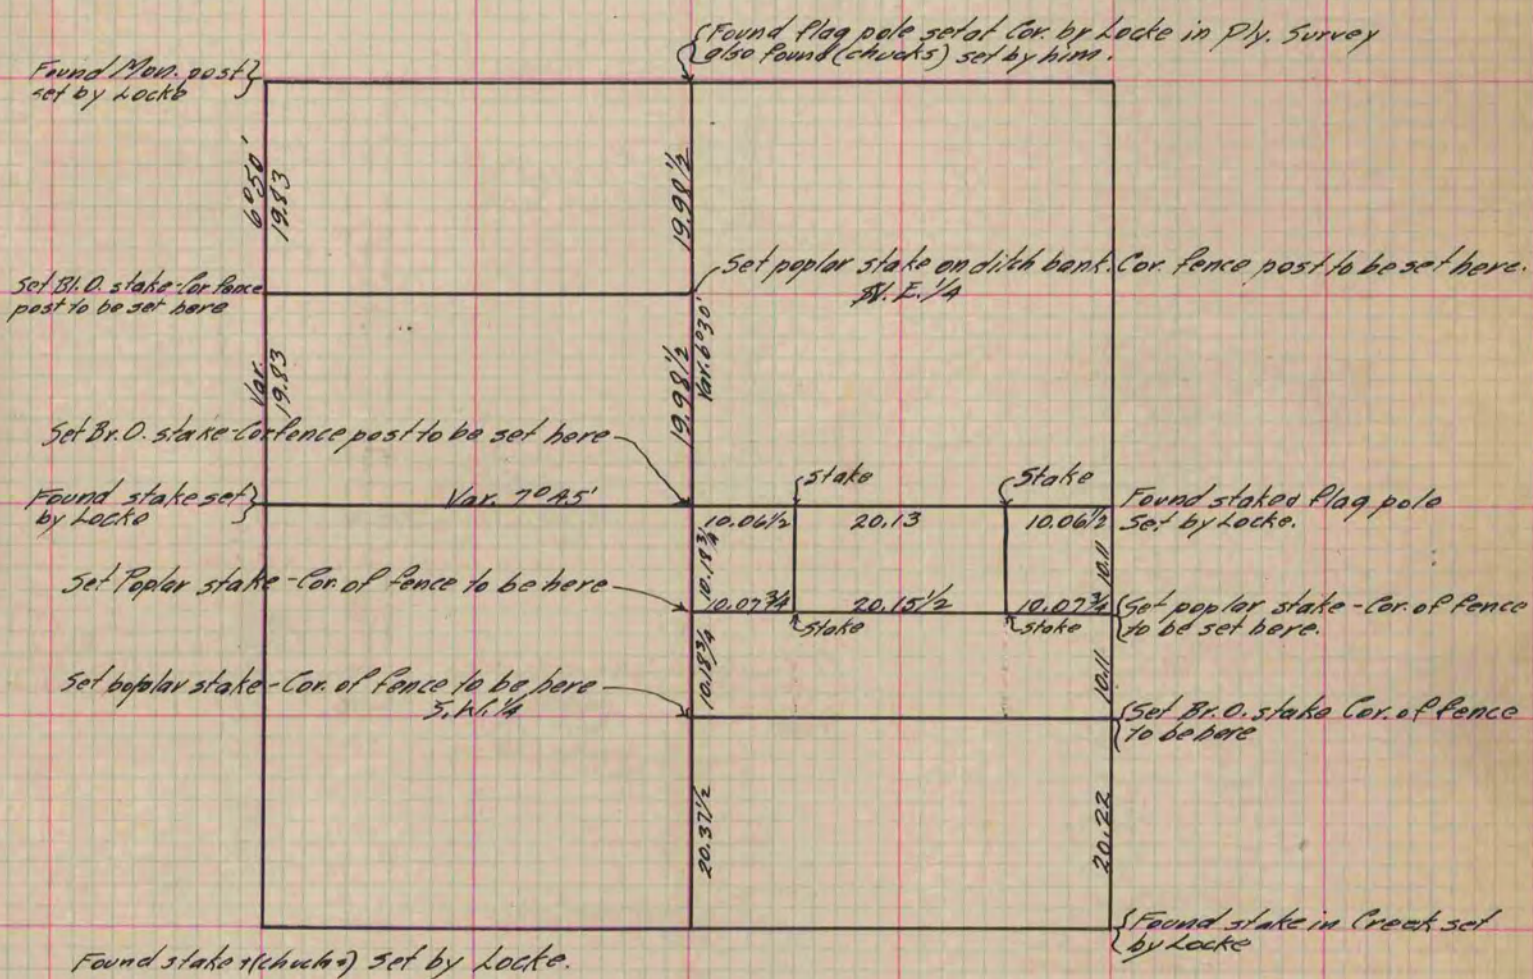 Found flag pole set at Cor. by Locke in Ply. Survey
also found (chucks) set by him.
Found Mon. post
set by Locke
6°50'
19.83
19.98½
Set poplar stake on ditch bank. Cor. fence post to be set here.
N.E.¼
Set Bl.O. stake-Cor fence
post to be set here
Var.
19.83
19.98½
Var. 6°30'
Set Br.O. stake-Cor fence post to be set here
Stake
Stake
Found stake set
by Locke
Var. 7°45'
Found stake & flag pole
Set by Locke.
10.06½
20.13
10.06½
10.18¾
10.11
Set Poplar stake-Cor. of fence to be here
10.07¾
20.15½
10.07¾
Set poplar stake-Cor. of fence
to be set here.
Stake
Stake
10.18¾
10.11
Set poplar stake-Cor. of fence to be here
S.W.¼
Set Br.O. stake Cor. of fence
to be here
20.37½
20.22
Found stake in Creek set
by Locke
Found stake & (chucks) set by Locke.